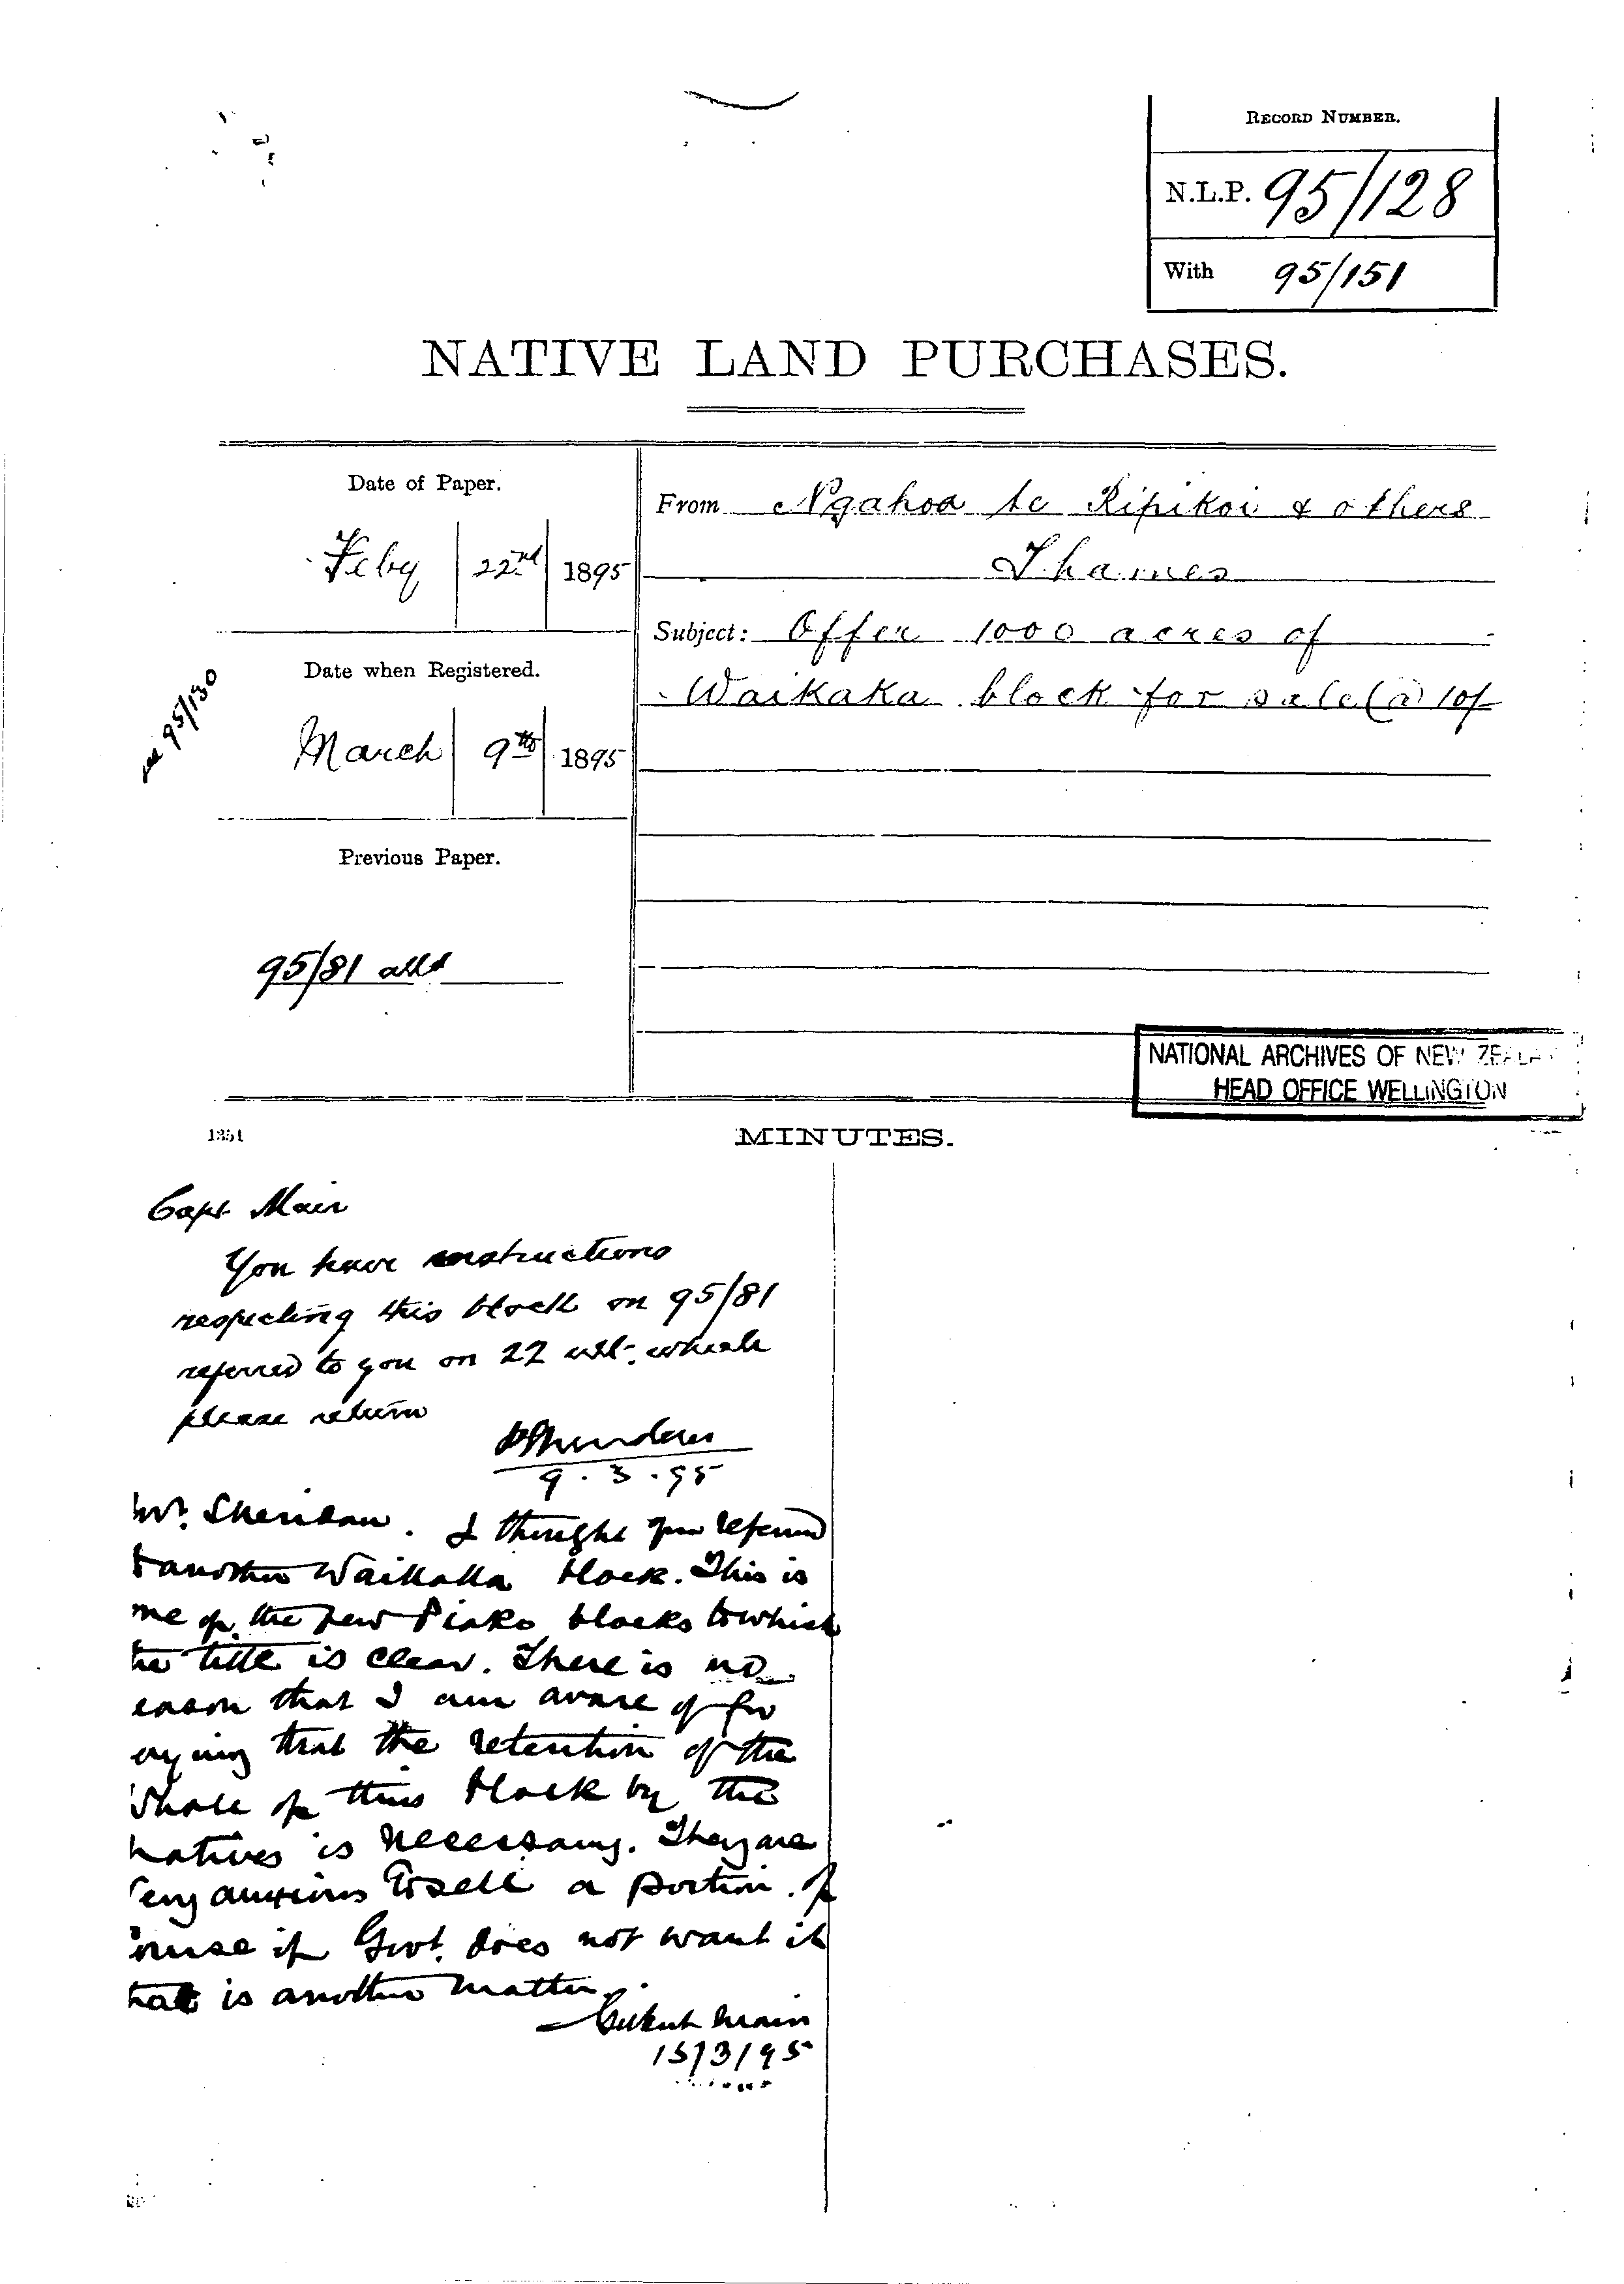 RECORD NUMBER.
N.L.P. 95/128
With 95/151
NATIVE LAND PURCHASES.
Date of Paper.
Feby 22nd 1895
Date when Registered.
March 9th 1895
see 95/130
Previous Paper.
95/81
From Ngahoa te Kipikoi & others
Thames
Subject: Offer 1000 acres of
Waikaka block for sale @ 10/-
NATIONAL ARCHIVES OF NEW ZEALA
HEAD OFFICE WELLINGTON
1351
MINUTES.
Capt Mair
You have instructions
respecting this block on 95/81
referred to you on 22 ult. which
please return
PSheridan
9.3.95
Mr. Sheridan. I thought you referred
to another Waikaka block. This is
one of the few Piako blocks to which
he title is clear. There is no
eason that I am aware of for
aying that the retention of the
whole of this block by the
Natives is necessary. They are
very anxious to sell a portion. Of
ourse if Govt. does not want it
hat is another matter.
Gilbert Mair
15/3/95